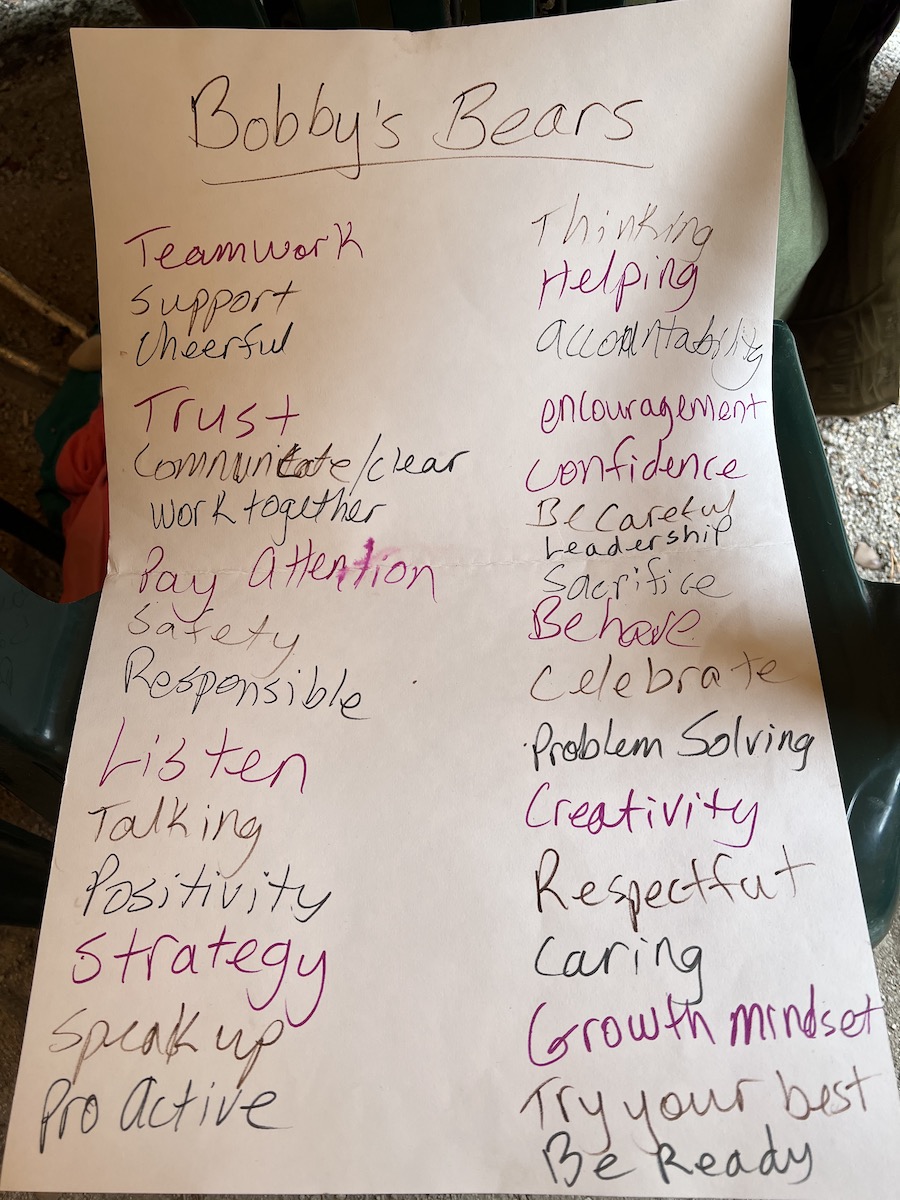 Bobby's Bears
Teamwork
Support
Cheerful
Trust
Communicate/clear
work together
Pay Attention
Safety
Responsible
Listen
Talking
Positivity
Strategy
Speak up
Pro Active
Thinking
Helping
accountability
encouragement
confidence
Be Careful
Leadership
Sacrifice
Behave
Celebrate
Problem Solving
Creativity
Respectful
Caring
Growth mindset
Try your best
Be Ready